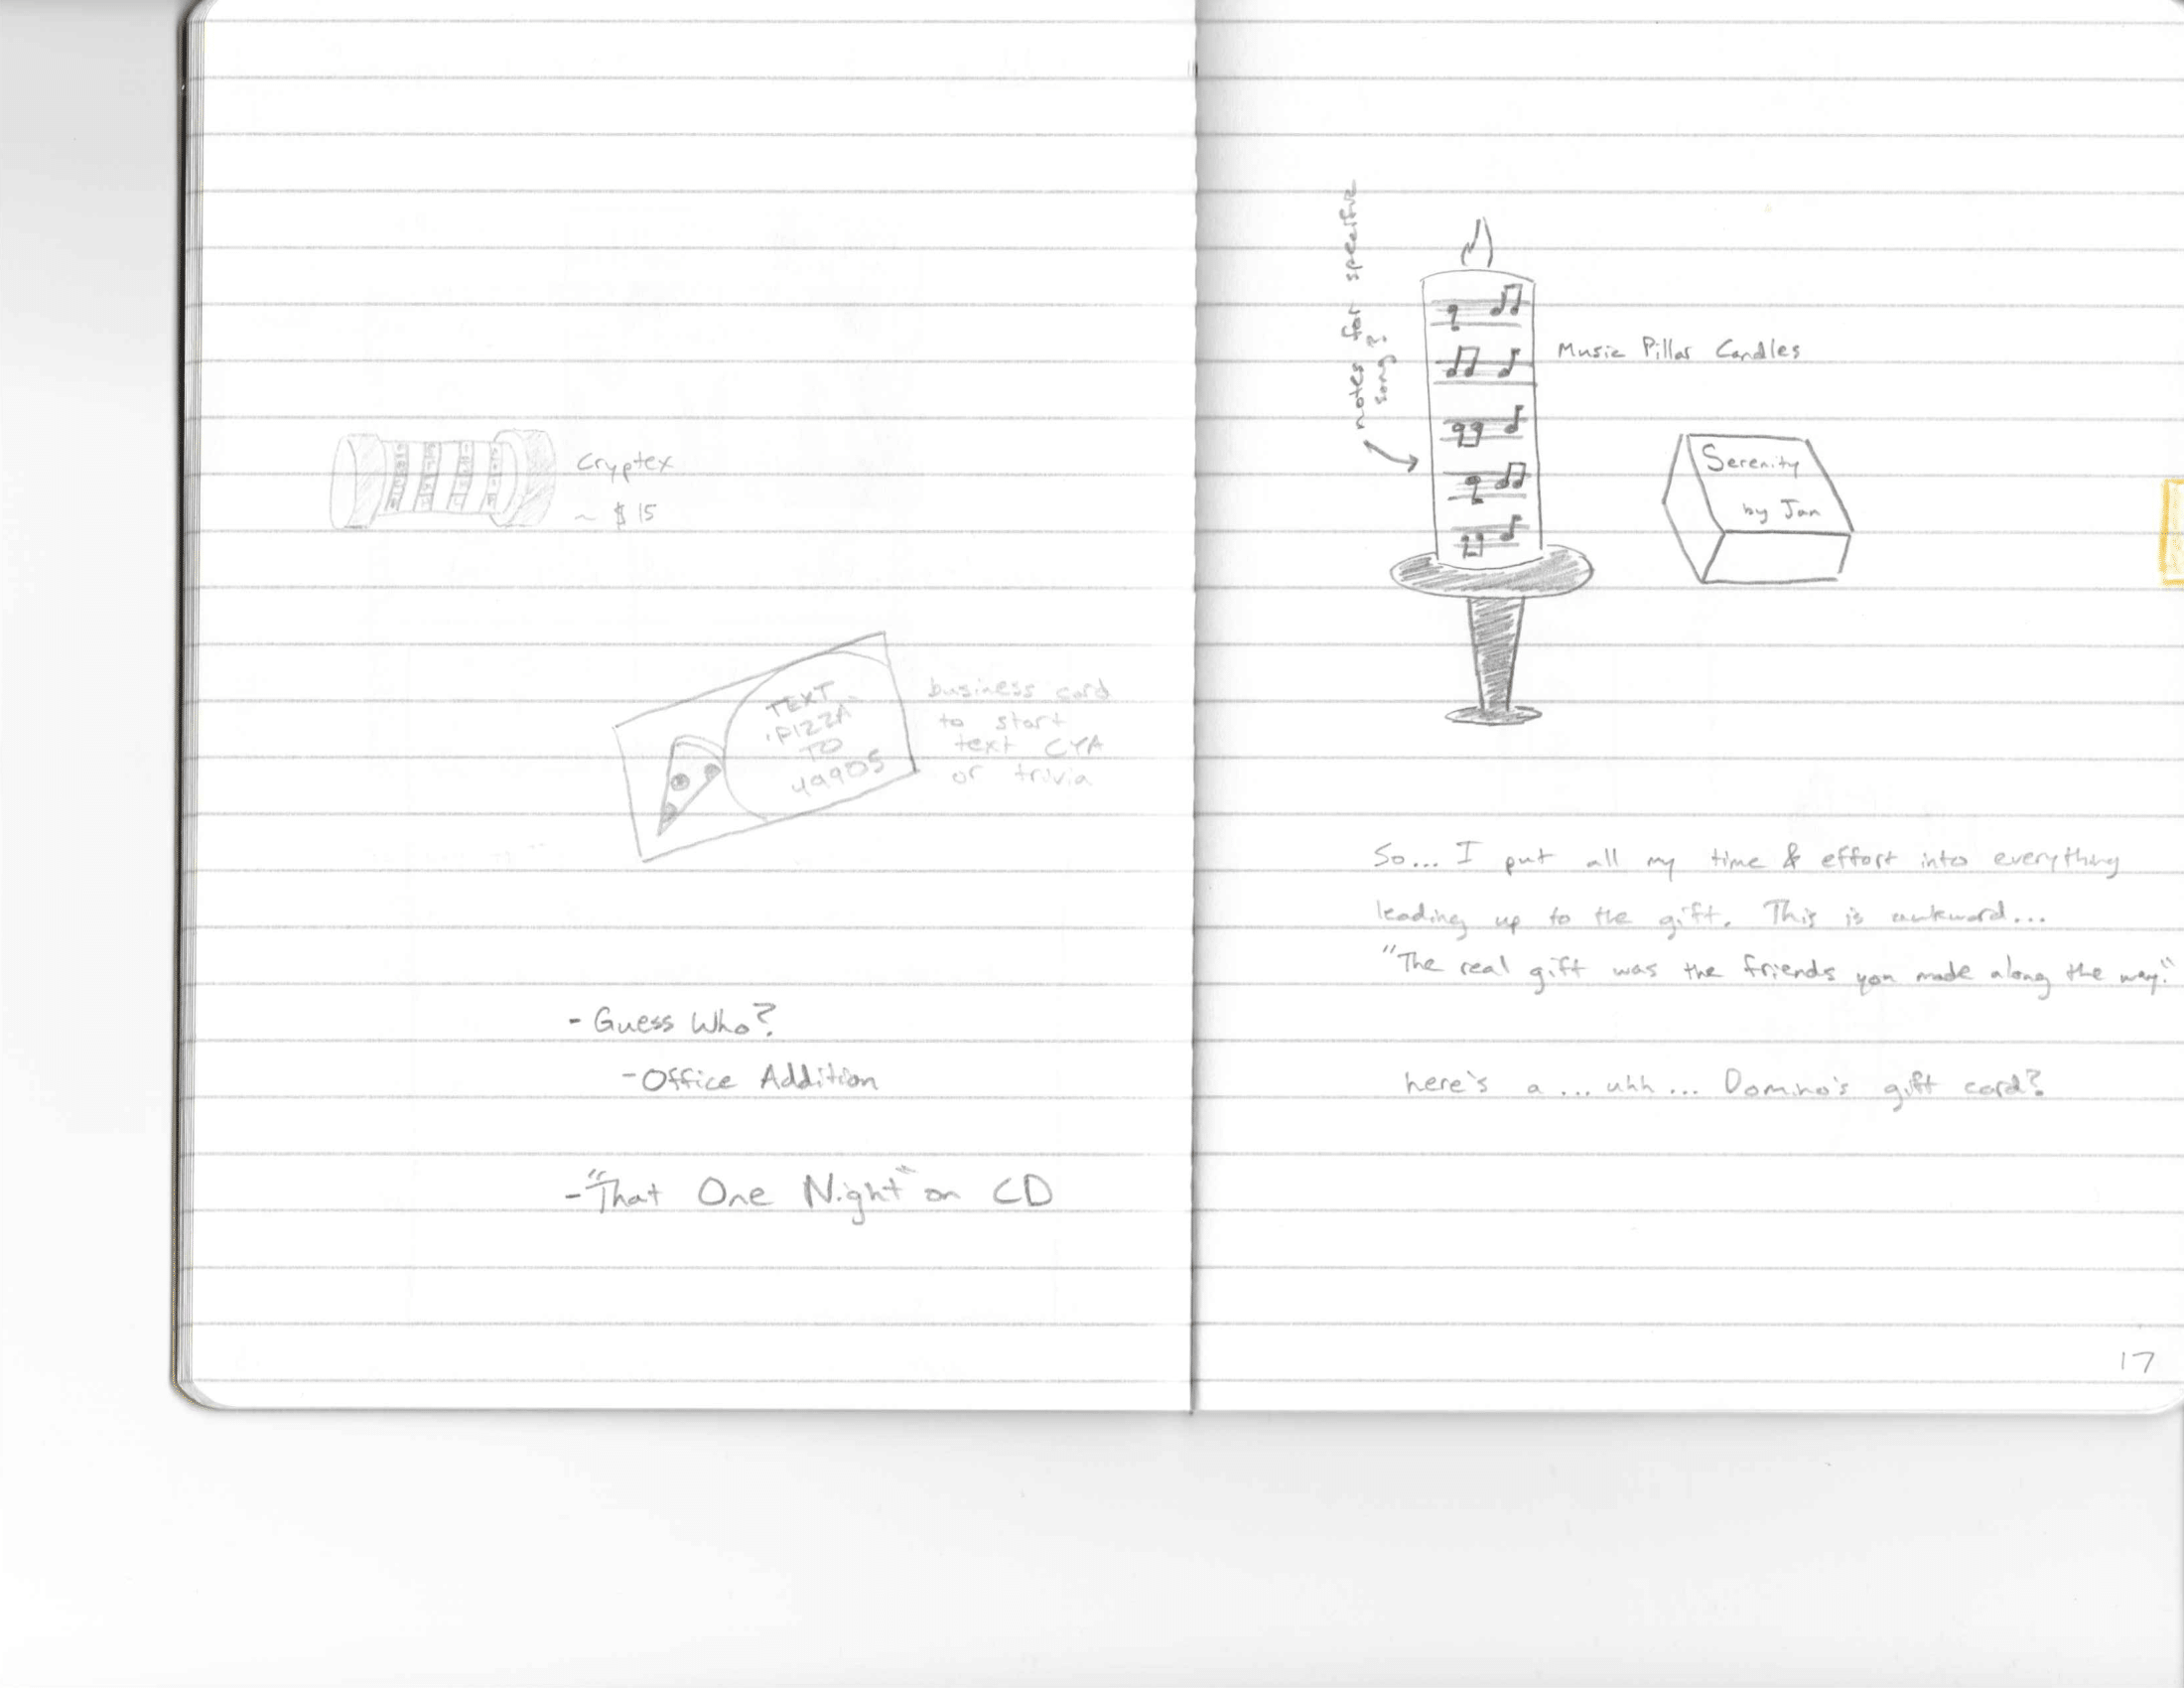 Cryptex
~ $15
TEXT
PIZZA
TO
49905
business card
to start
text CYA
or trivia
- Guess Who?
- Office Addition
- "That One Night" on CD
notes for specific
song?
Music Pillar Candles
Serenity
by Jan
So... I put all my time & effort into everything
leading up to the gift. This is awkward...
"The real gift was the friends you made along the way."
here's a ... uhh ... Domino's gift card?
17